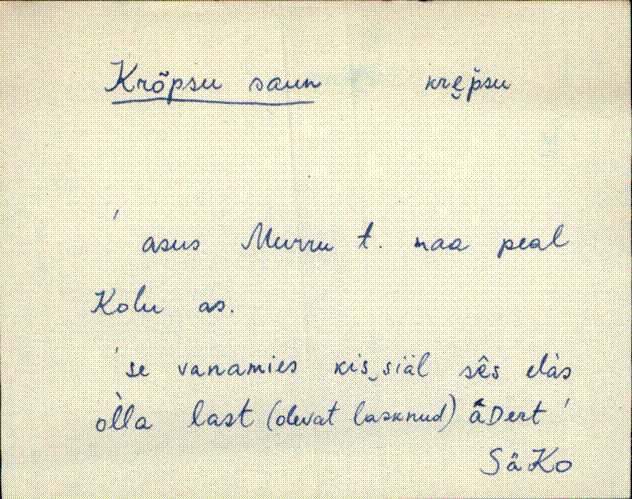 Krõpsu saun krẹp̆su
' asus Murru t. maa peal
Kolu as.
'se vanamies kis‿siäl sê̬s elàs
òlla last (olevat lasknud) âDert'
SäKo